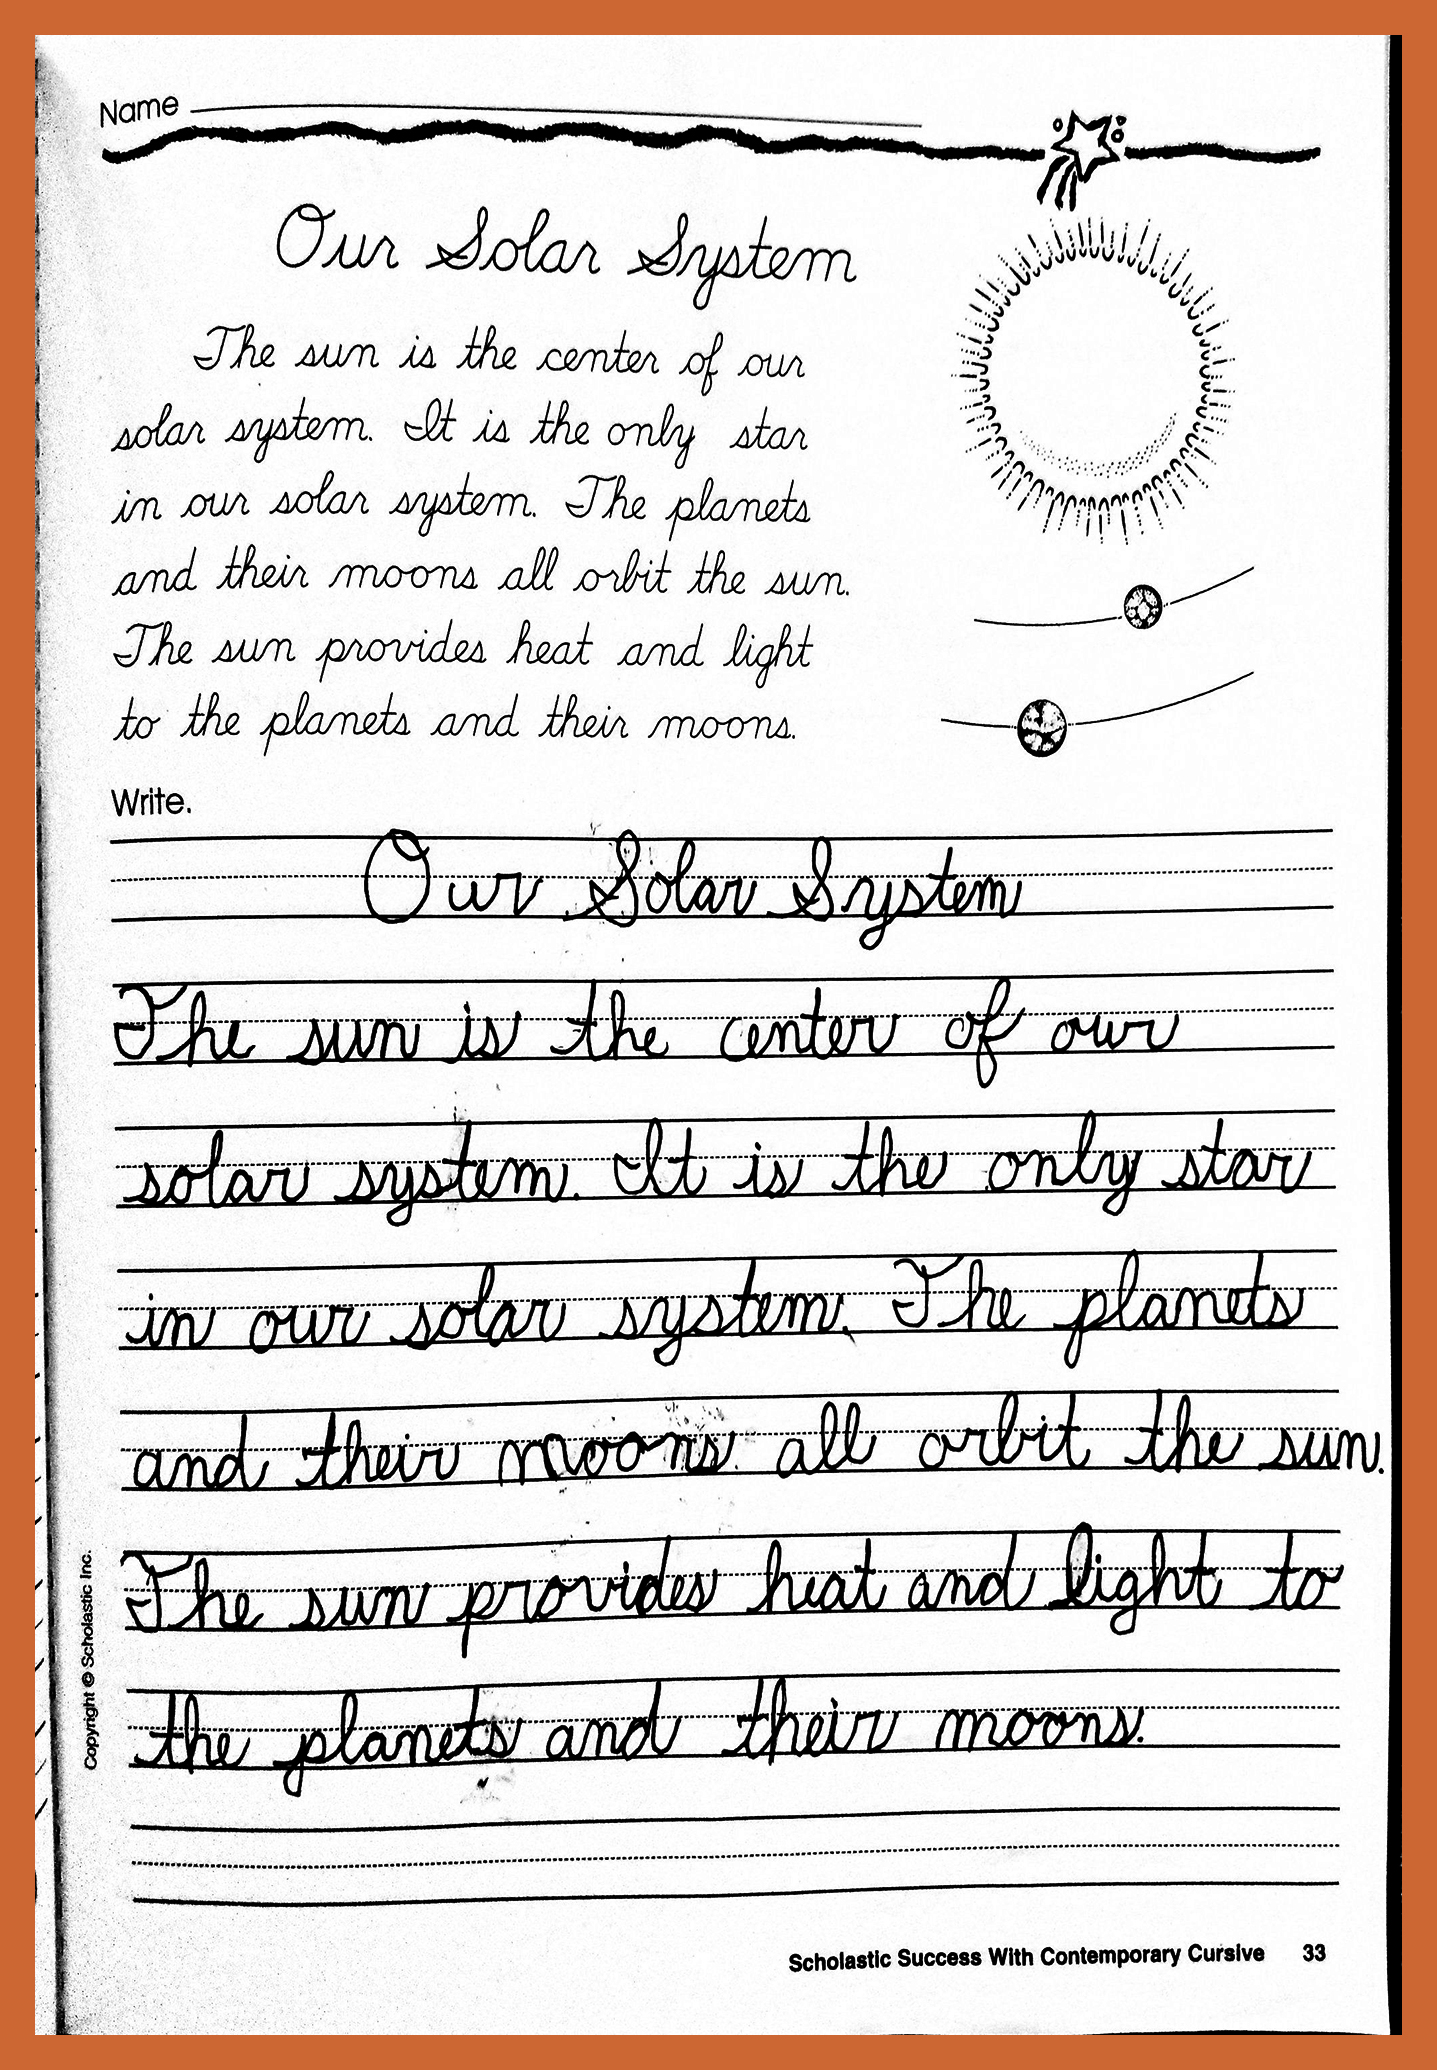 Name
Our Solar System
The sun is the center of our
solar system. It is the only star
in our solar system. The planets
and their moons all orbit the sun.
The sun provides heat and light
to the planets and their moons.
Write.
Our Solar System
The sun is the center of our
solar system. It is the only star
in our solar system. The planets
and their moons all orbit the sun.
The sun provides heat and light to
the planets and their moons.
Copyright © Scholastic Inc.
Scholastic Success With Contemporary Cursive 33